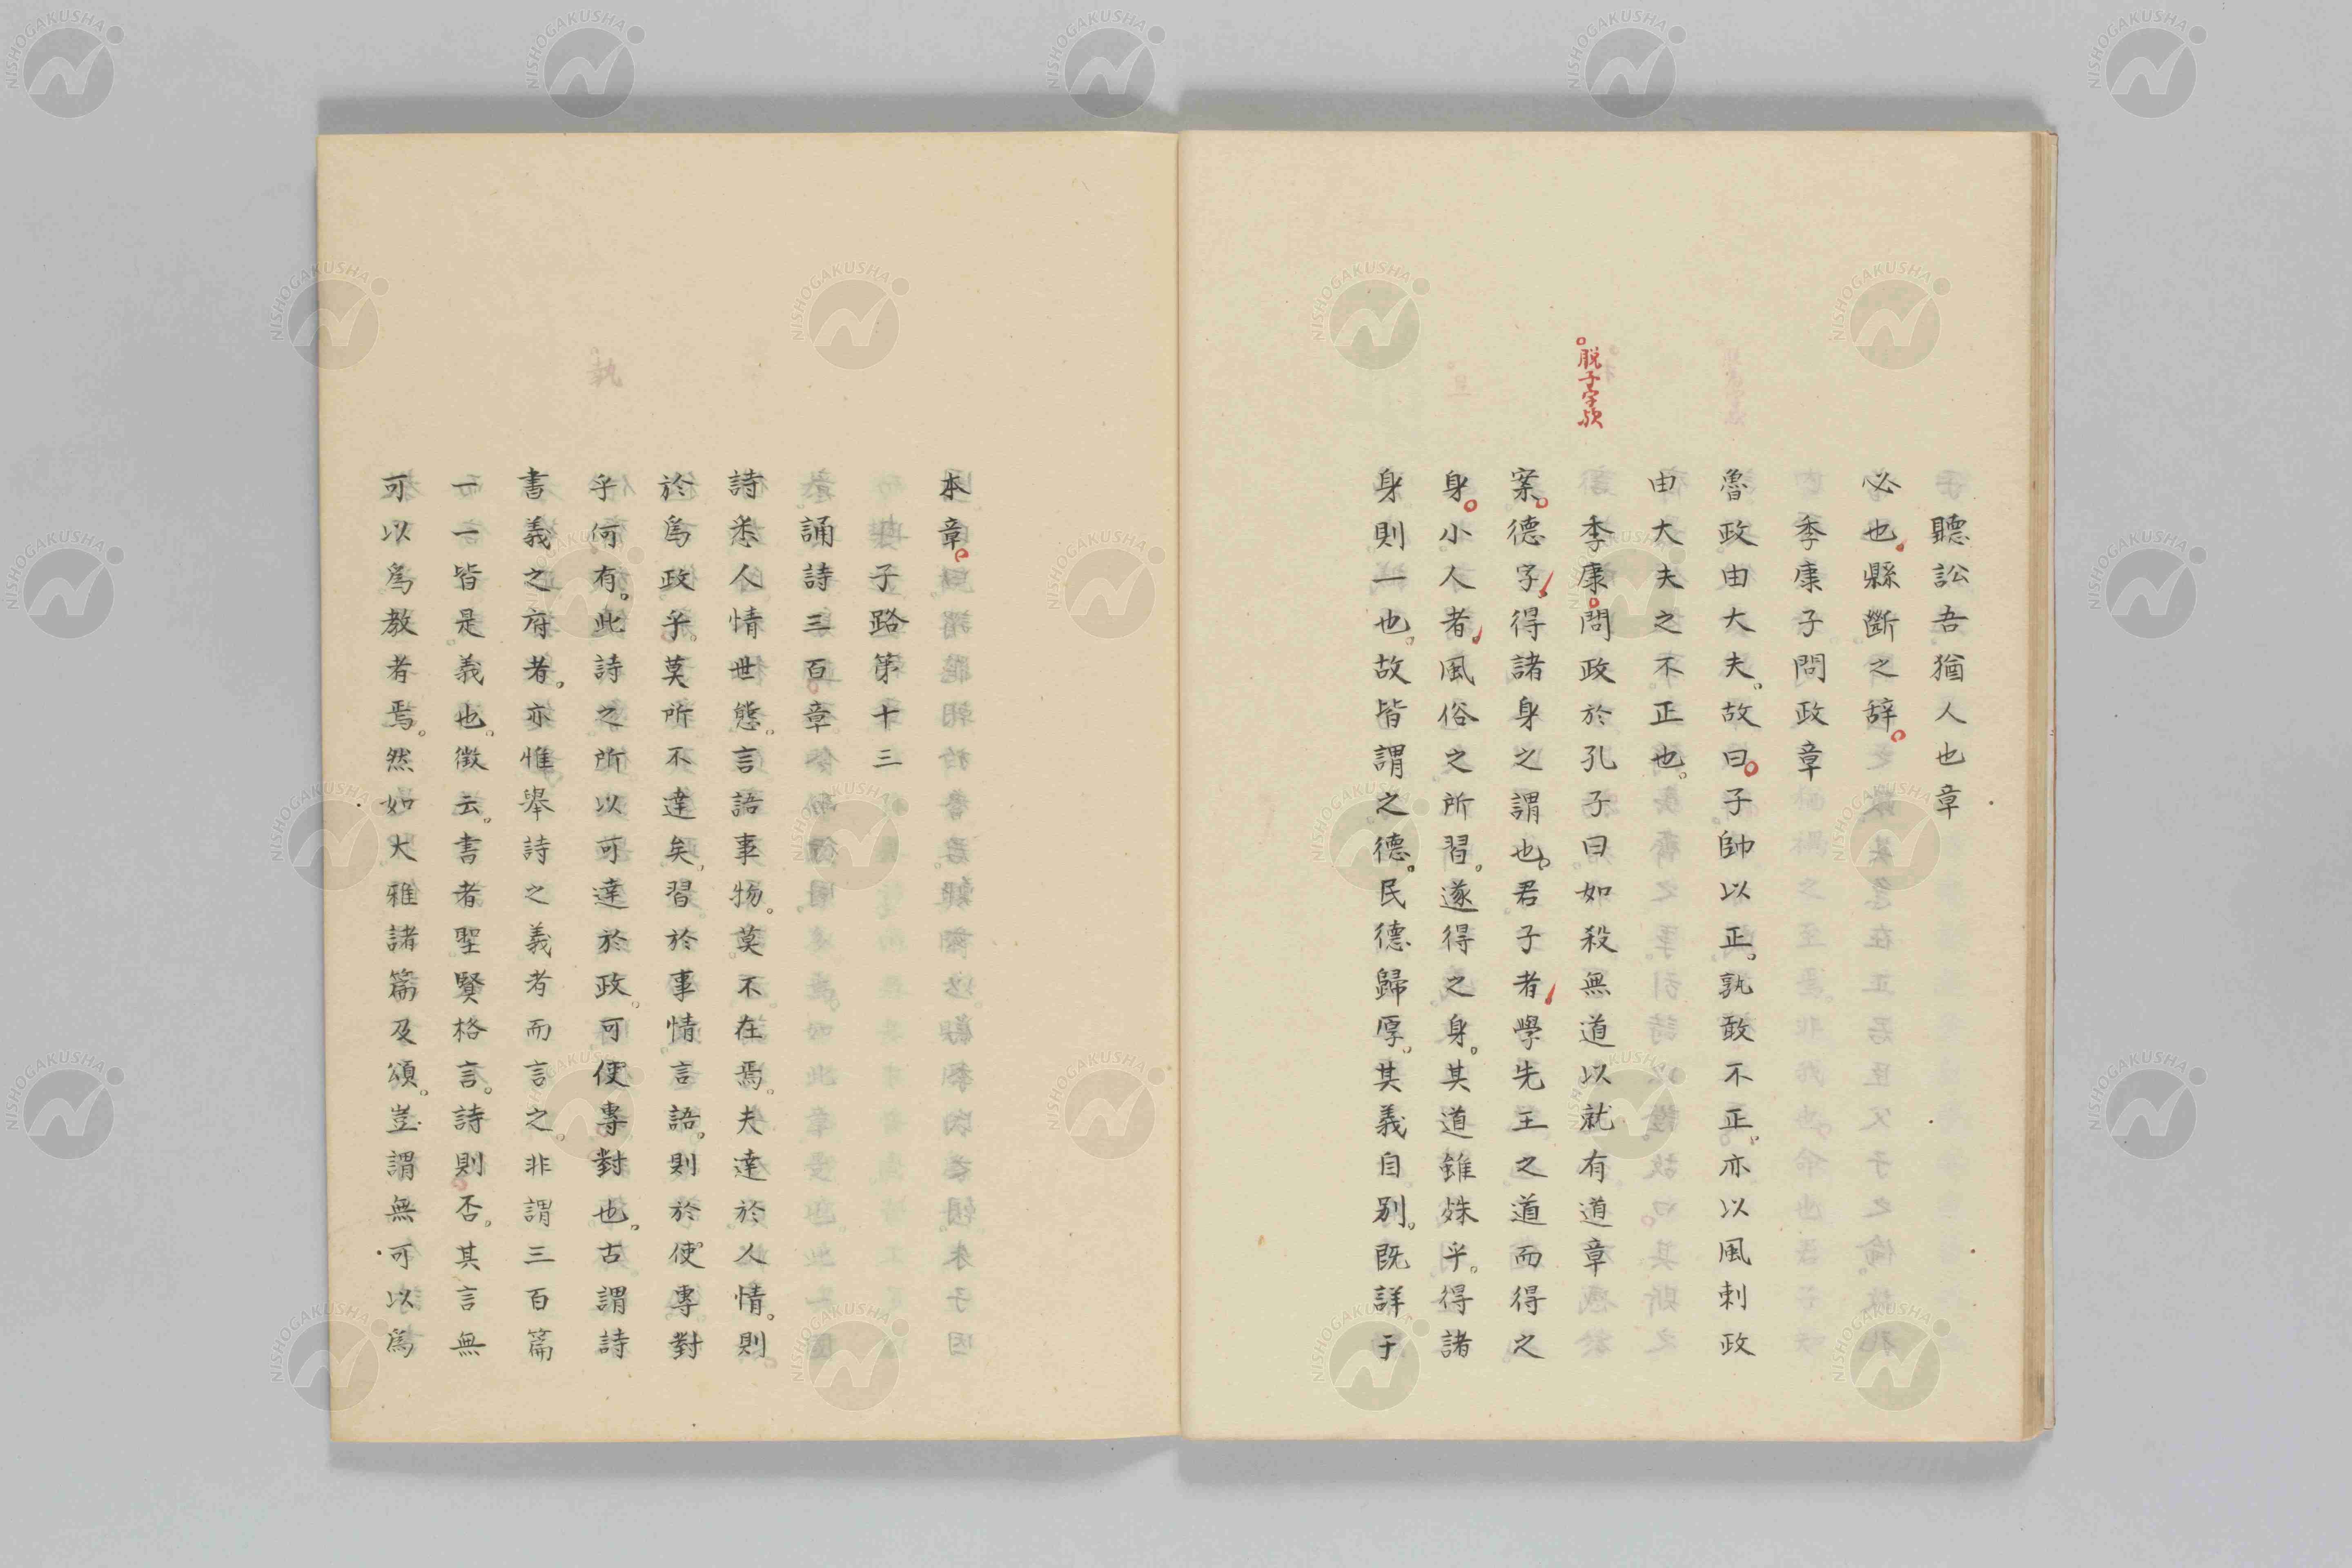 聽訟吾猶人也章
必也縣斷之辭。
季康子問政章
魯政由大夫。故曰。子帥以正。孰敢不正。亦以風刺政
由大夫之不正也。
。脱子字歟
季康。問政於孔子曰如殺無道以就有道章
案。德字、得諸身之謂也。君子者、學先王之道而得之
身。小人者、風俗之所習。遂得之身。其道雖殊乎。得諸
身則一也。故皆謂之德。民德歸厚。其義自別。既詳于
本章。
子路第十三
誦詩三百章
詩悉人情世態。言語事物。莫不在焉。夫達於人情。則
於爲政乎。莫所不達矣。習於事情言語。則於使專對
乎何有。此詩之所以可達於政。可使專對也。古謂詩
書義之府者。亦惟舉詩之義者而言之。非謂三百篇
一一皆是義也。徵云。書者聖賢格言。詩則否。其言無
可以爲教者焉。然如大雅諸篇及頌。豈謂無可以爲
NISHOGAKUSHA